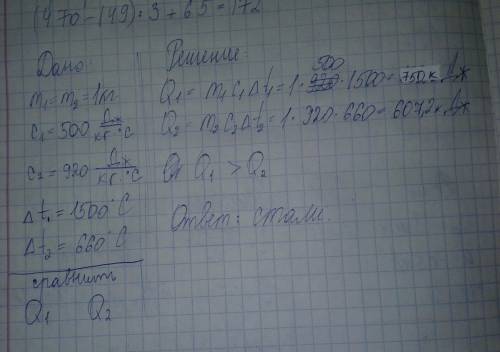 (470 - 149) : 3 + 65 = 172
Дано:
m₁ = m₂ = 1кг
c₁ = 500 Дж/кг·°C
c₂ = 920 Дж/кг·°C
Δt₁ = 1500°C
Δt₂ = 660°C
сравнить
Q₁ Q₂
Решение:
500
Q₁ = m₁c₁Δt₁ = 1 · 1500 = 750к Дж
Q₂ = m₂c₂Δt₂ = 1 · 920 · 660 = 607,2к Дж
Q₁ > Q₂
Ответ: стали.